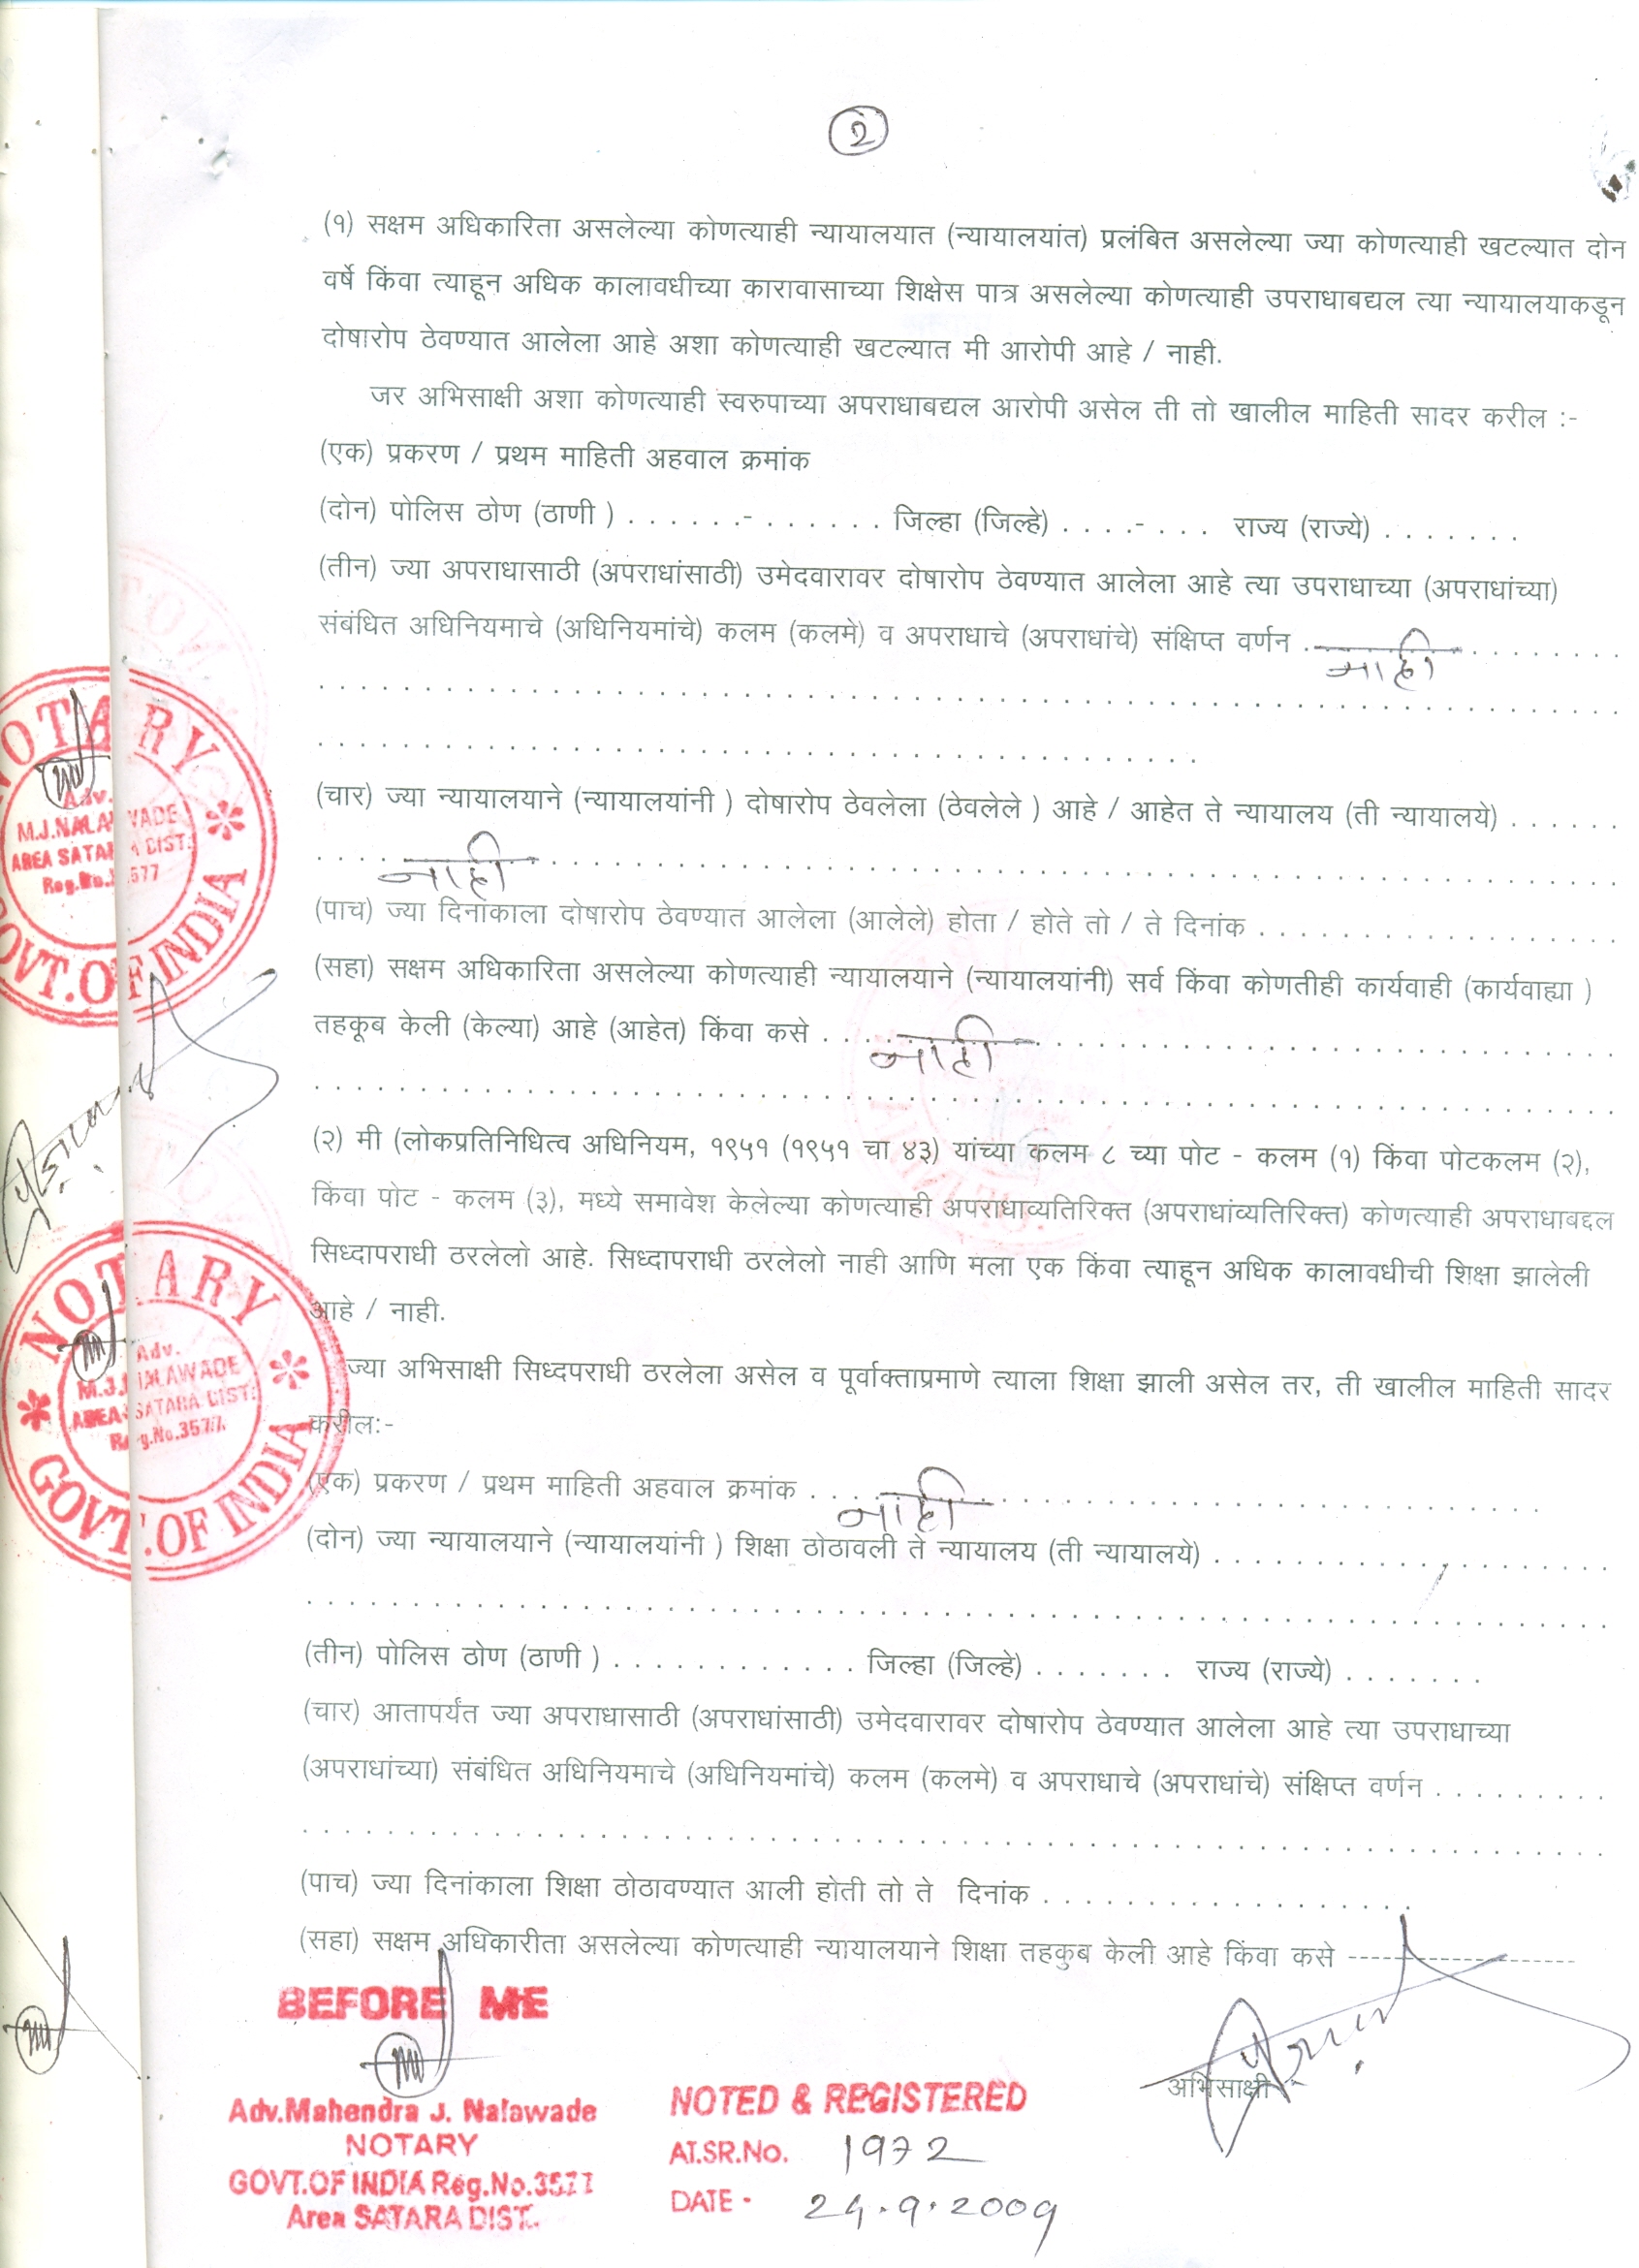 २
(१) सक्षम अधिकारिता असलेल्या कोणत्याही न्यायालयात (न्यायालयांत) प्रलंबित असलेल्या ज्या कोणत्याही खटल्यात दोन
वर्षे किंवा त्याहून अधिक कालावधीच्या कारावासाच्या शिक्षेस पात्र असलेल्या कोणत्याही उपराधाबद्यल त्या न्यायालयाकडून
दोषारोप ठेवण्यात आलेला आहे अशा कोणत्याही खटल्यात मी आरोपी आहे / नाही.
जर अभिसाक्षी अशा कोणत्याही स्वरुपाच्या अपराधाबद्यल आरोपी असेल ती तो खालील माहिती सादर करील :-
(एक) प्रकरण / प्रथम माहिती अहवाल क्रमांक
(दोन) पोलिस ठोण (ठाणी ) . . . . . .- . . . . . . जिल्हा (जिल्हे) . . . .- . . . राज्य (राज्ये) . . . . . . .
(तीन) ज्या अपराधासाठी (अपराधांसाठी) उमेदवारावर दोषारोप ठेवण्यात आलेला आहे त्या उपराधाच्या (अपराधांच्या)
संबंधित अधिनियमाचे (अधिनियमांचे) कलम (कलमे) व अपराधाचे (अपराधांचे) संक्षिप्त वर्णन . नाही . . . . . . .
(चार) ज्या न्यायालयाने (न्यायालयांनी ) दोषारोप ठेवलेला (ठेवलेले ) आहे / आहेत ते न्यायालय (ती न्यायालये) . . . . . .
नाही
(पाच) ज्या दिनांकाला दोषारोप ठेवण्यात आलेला (आलेले) होता / होते तो / ते दिनांक . . . . . . . . . . . . . . . . . .
(सहा) सक्षम अधिकारिता असलेल्या कोणत्याही न्यायालयाने (न्यायालयांनी) सर्व किंवा कोणतीही कार्यवाही (कार्यवाह्या )
तहकूब केली (केल्या) आहे (आहेत) किंवा कसे . . नाही . . . . . . . . . . . . . . . . . . . . . . . . . . . .
(२) मी (लोकप्रतिनिधित्व अधिनियम, १९५१ (१९५१ चा ४३) यांच्या कलम ८ च्या पोट - कलम (१) किंवा पोटकलम (२),
किंवा पोट - कलम (३), मध्ये समावेश केलेल्या कोणत्याही अपराधाव्यतिरिक्त (अपराधांव्यतिरिक्त) कोणत्याही अपराधाबद्दल
सिध्दापराधी ठरलेलो आहे. सिध्दापराधी ठरलेलो नाही आणि मला एक किंवा त्याहून अधिक कालावधीची शिक्षा झालेली
आहे / नाही.
ज्या अभिसाक्षी सिध्दपराधी ठरलेला असेल व पूर्वाक्ताप्रमाणे त्याला शिक्षा झाली असेल तर, ती खालील माहिती सादर
करील:-
(एक) प्रकरण / प्रथम माहिती अहवाल क्रमांक . . नाही . . . . . . . . . . . . . . . . . . . . . . . . . .
(दोन) ज्या न्यायालयाने (न्यायालयांनी ) शिक्षा ठोठावली ते न्यायालय (ती न्यायालये) . . . . . . . . . . . . . . . . . . .
(तीन) पोलिस ठोण (ठाणी ) . . . . . . . . . . . . जिल्हा (जिल्हे) . . . . . . . राज्य (राज्ये) . . . . . . .
(चार) आतापर्यंत ज्या अपराधासाठी (अपराधांसाठी) उमेदवारावर दोषारोप ठेवण्यात आलेला आहे त्या उपराधाच्या
(अपराधांच्या) संबंधित अधिनियमाचे (अधिनियमांचे) कलम (कलमे) व अपराधाचे (अपराधांचे) संक्षिप्त वर्णन . . . . . . . . .
(पाच) ज्या दिनांकाला शिक्षा ठोठावण्यात आली होती तो ते दिनांक . . . . . . . . . . . . . . . . . .
(सहा) सक्षम अधिकारीता असलेल्या कोणत्याही न्यायालयाने शिक्षा तहकुब केली आहे किंवा कसे --------------------
अभिसाक्षी
BEFORE ME
Adv.Mahendra J. Nalawade
NOTARY
GOVT.OF INDIA Reg.No.3577
Area SATARA DIST.
NOTED & REGISTERED
AT.SR.No. 1972
DATE - 24.9.2009
NOTARY
Adv.
M.J.NALAWADE
AREA SATARA DIST.
Reg.No.3577
GOVT.OF INDIA
NOTARY
Adv.
M.J.NALAWADE
AREA SATARA DIST.
Reg.No.3577
GOVT.OF INDIA